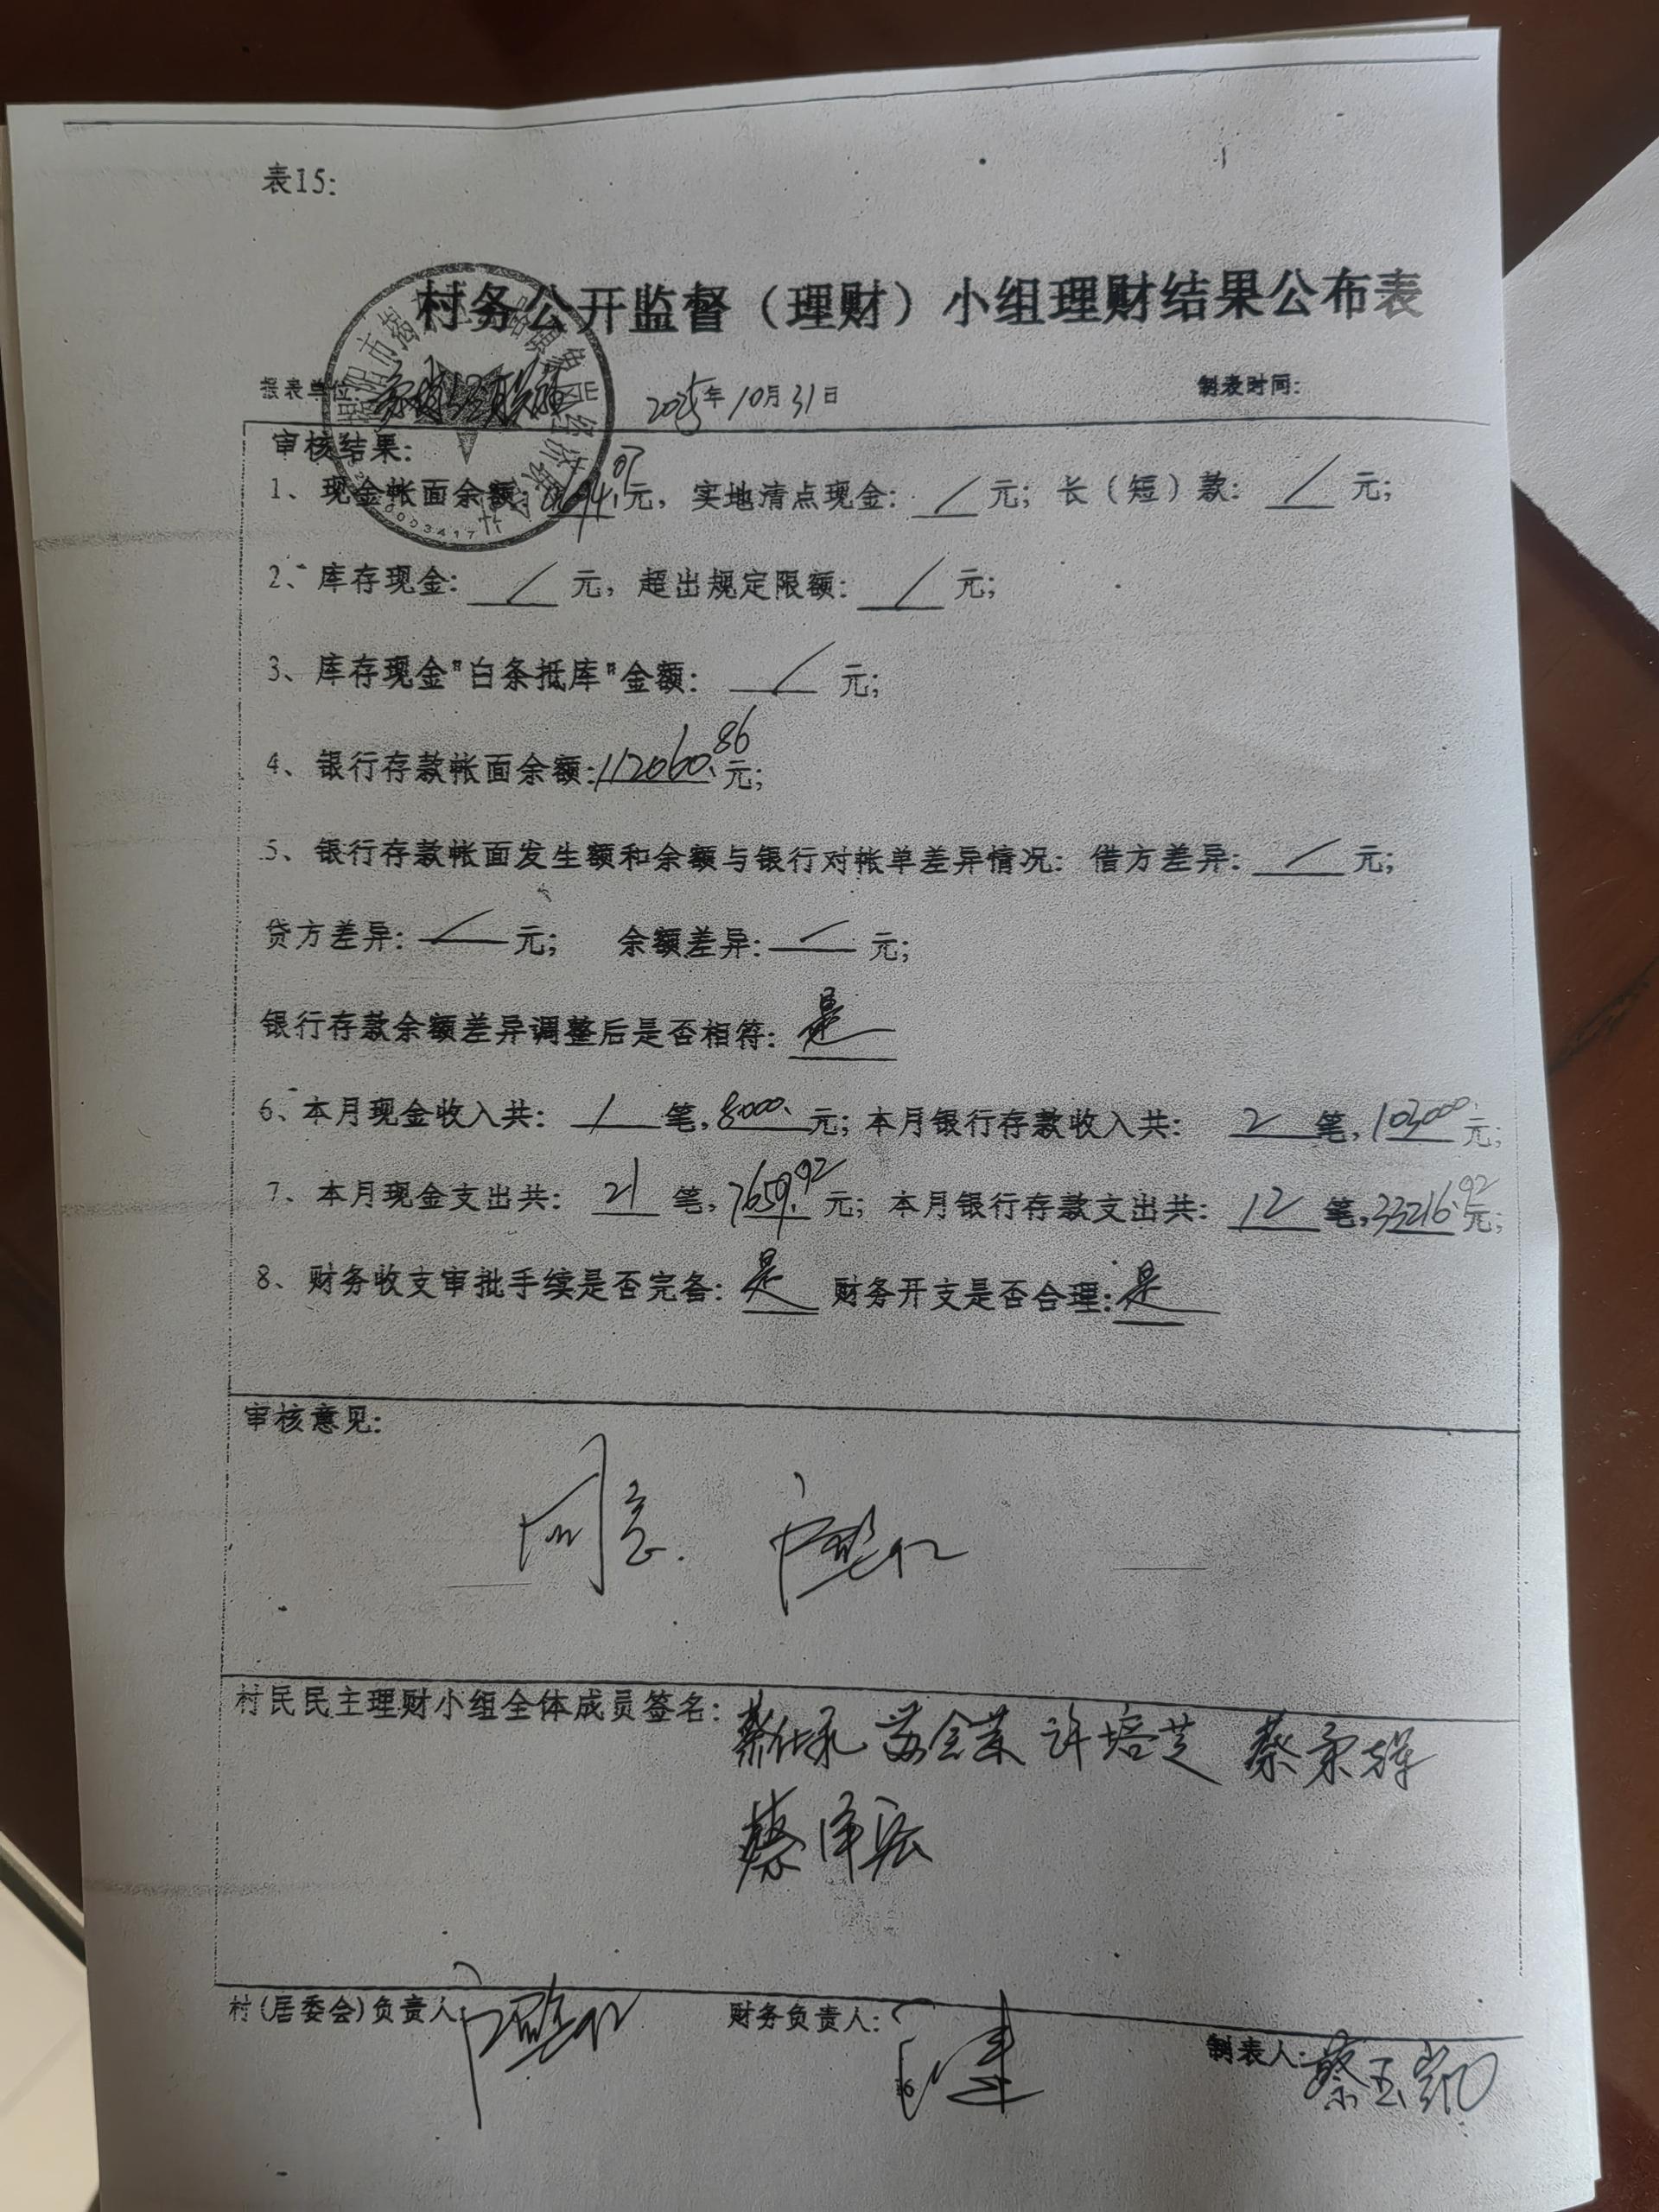 表15:
村务公开监督（理财）小组理财结果公布表
报表单位: 2025年10月31日 制表时间:
审核结果:
1、现金帐面余额: 元，实地清点现金: / 元; 长（短）款: / 元;
2、库存现金: / 元，超出规定限额: / 元;
3、库存现金"白条抵库"金额: / 元;
4、银行存款帐面余额:112060.86元;
5、银行存款帐面发生额和余额与银行对帐单差异情况: 借方差异: / 元;
贷方差异: / 元; 余额差异: / 元;
银行存款余额差异调整后是否相符: 是
6、本月现金收入共: 1 笔,8000.元; 本月银行存款收入共: 2 笔,103000元;
7、本月现金支出共: 21 笔,7659.92元; 本月银行存款支出共: 12 笔,33216.92元;
8、财务收支审批手续是否完备: 是 财务开支是否合理: 是
审核意见:
同意.
村民民主理财小组全体成员签名: 蔡仕永 许培芝 蔡
蔡泽
村(居委会)负责人: 财务负责人: 制表人: 蔡玉凯